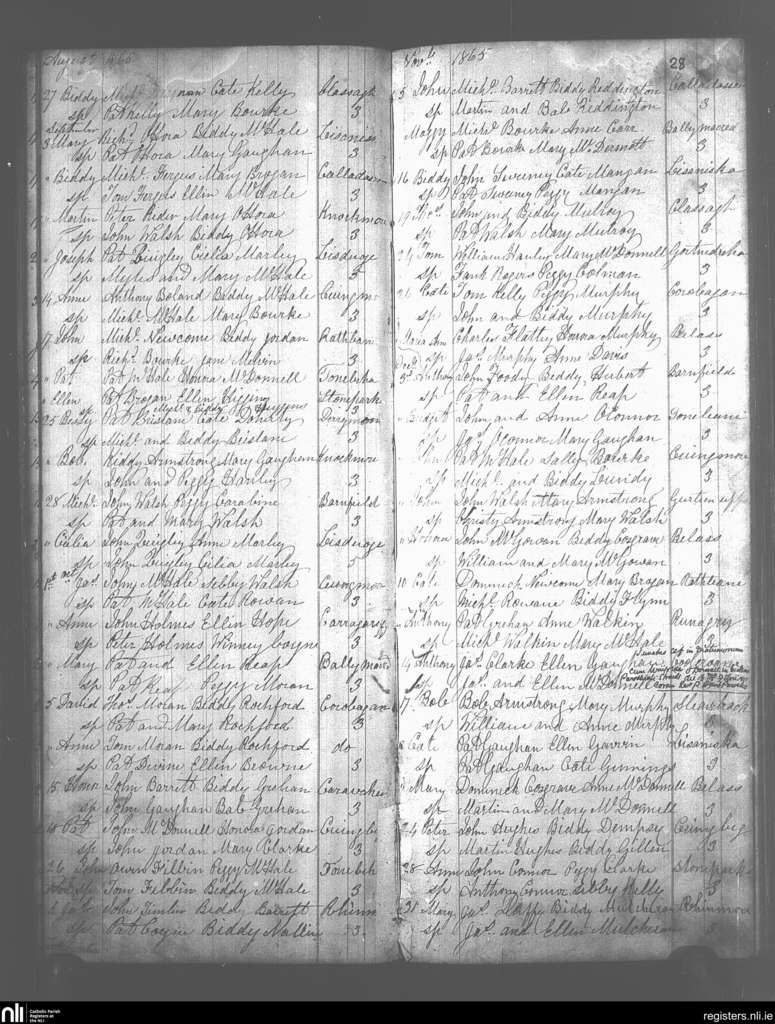 August 1865
27 Biddy Mich. Cate Kelly Classagh
sp Pat Kelly Mary Bourke 3
September
3 Mary Rich. OHora Biddy McHale Lisaniss
sp Pat OHora Mary Gaughan 3
" Biddy Mich. Fergus Mary Brogan Calladason
sp Tom Fergus Ellin McHale 3
" Martin Peter Reder Mary OHora Knockmore
sp John Walsh Biddy OHora 3
" Joseph Pat Quigley Cielia Marley Lisduoge
sp Myles and Mary McHale 3
14 Anne Anthony Boland Biddy McHale Cuingmo
sp Mich. McHale Mary Bourke 3
17 John Mich. Newcome Biddy Jordan Rathban
sp Rich. Bourke Jane Melvin 3
" Pat Pat McHale Honora McDonnell Tonebeka
" Ellen Pat Brogan Ellen Higgins Stonepark
sp Myck & Biddy Higgens
25 Bessy Pat Brislane Cate Doherty
sp Mich. and Biddy Brislane 3
" Bob. Kiddy Armstrong Mary Gaughan Knockmore
sp John and Peggy Hanley 3
28 Mich. John Walsh Peggy Caraline Barnfield
sp Pat and Mary Walsh 3
" Cielia John Quigley Anne Marley Lisduoge
sp John Quigley Cilia Marley 5
1st Oct Jas. John McHale Sibby Walsh Cuingmor
sp Pat McHale Cate Rowan 3
" Ann John Holmes Ellin Hope
sp Peter Holmes Winney Coyne 3
" Mary Pat and Ellen Reap Ballymore
sp Pat Reap Peggy Moran 3
5 David Thos. Molan Biddy Rochford Corobagan
sp Pat and Mary Rochford 3
" Anne Tom Moran Biddy Rochford do
sp Pat Divine Ellen Browne 3
15 Honra John Barrett Biddy Grehan
sp John Gaughan Bab Grehan 3
" Pat John McDonnell Honora Jordan Cuingbeg
sp John Jordan Mary Clarke 3
26 John Owen Filbin Peggy McHale Tonebeh
sp Tom Filbbin Biddy McHale 3
Jas. John Timlin Biddy Barrett Rhinm
sp Pat Coyne Biddy Nallin 3
Novr. 1865 28
5 John Mich. Barrett Biddy Reddington Calladason
sp Martin and Bab Reddington 3
Mary Mich. Bourke Anne Carr Ballymacred
sp Pat Bourke Mary McDermott 3
16 Biddy John Sweeney Cate Mangan Lisaniska
sp Pat Sweeney Peggy Mangan 3
19 Thos. John and Biddy Mulroy Classagh
sp Pat Walsh Mary Mulroy 3
24 Tom William Hanley Mary McDonnell Gortnedroha
sp Frank Rogers Peggy Colman 3
26 Cate Tom Kelly Peggy Murphy Corobagan
sp John and Biddy Murphy 3
Maria Ann Charles Flattly Honora Murphy Belass
Decr. sp Jas. Murphy Anne Davis 3
3d Anthony John Foody Biddy Hubert Barnfield
sp Pat and Ellen Reap 3
" Bridget John and Anne OConnor Toneleani
sp Jas. OConnor Mary Gaughan 3
" John Pat McHale Sally Bourke Cuingmore
sp Mich. and Biddy Lundy 3
" John John Walsh Mary Armstrong Gurteen upp
sp Christy Armstrong Mary Walsh 3
" Honora John McGowan Biddy Cosgrave Belass
sp William and Mary McGowan 3
10 Cate Dominick Newcome Mary Brogan Rathleane
sp Michl. Rowane Biddy Flynn 3
" Anthony Pat Grehan Anne Walkin Runagry
sp Mich. Walkin Mary McHale 3
14 Anthony Jas. Clarke Ellen Gaughan
sp Jas. and Ellen McDonnell
17 Bob. Bob. Armstrong Mary Murphy Sleaverock
sp William and Anne Murphy
" Cate Pat Gaughan Ellen Gawen Lisaniska
sp Pat Gaughan Cate Ginnings 3
" Mary Dominick Cosgrave Anne McDonnell Belass
sp Martin and Mary McDonnell 3
24 Peter John Hughes Biddy Dempsey Cuingbeg
sp Martin Hughes Biddy Gillen 3
28 Ann John Connor Peggy Clarke Stonepark
sp Anthony Connor Sibby Kelly 3
31 Mary Jas. Lappy Biddy Mulcheran Rhinmore
sp Jas. and Ellen Mulcheran
nli
Catholic Parish
Registers at
the NLI
registers.nli.ie